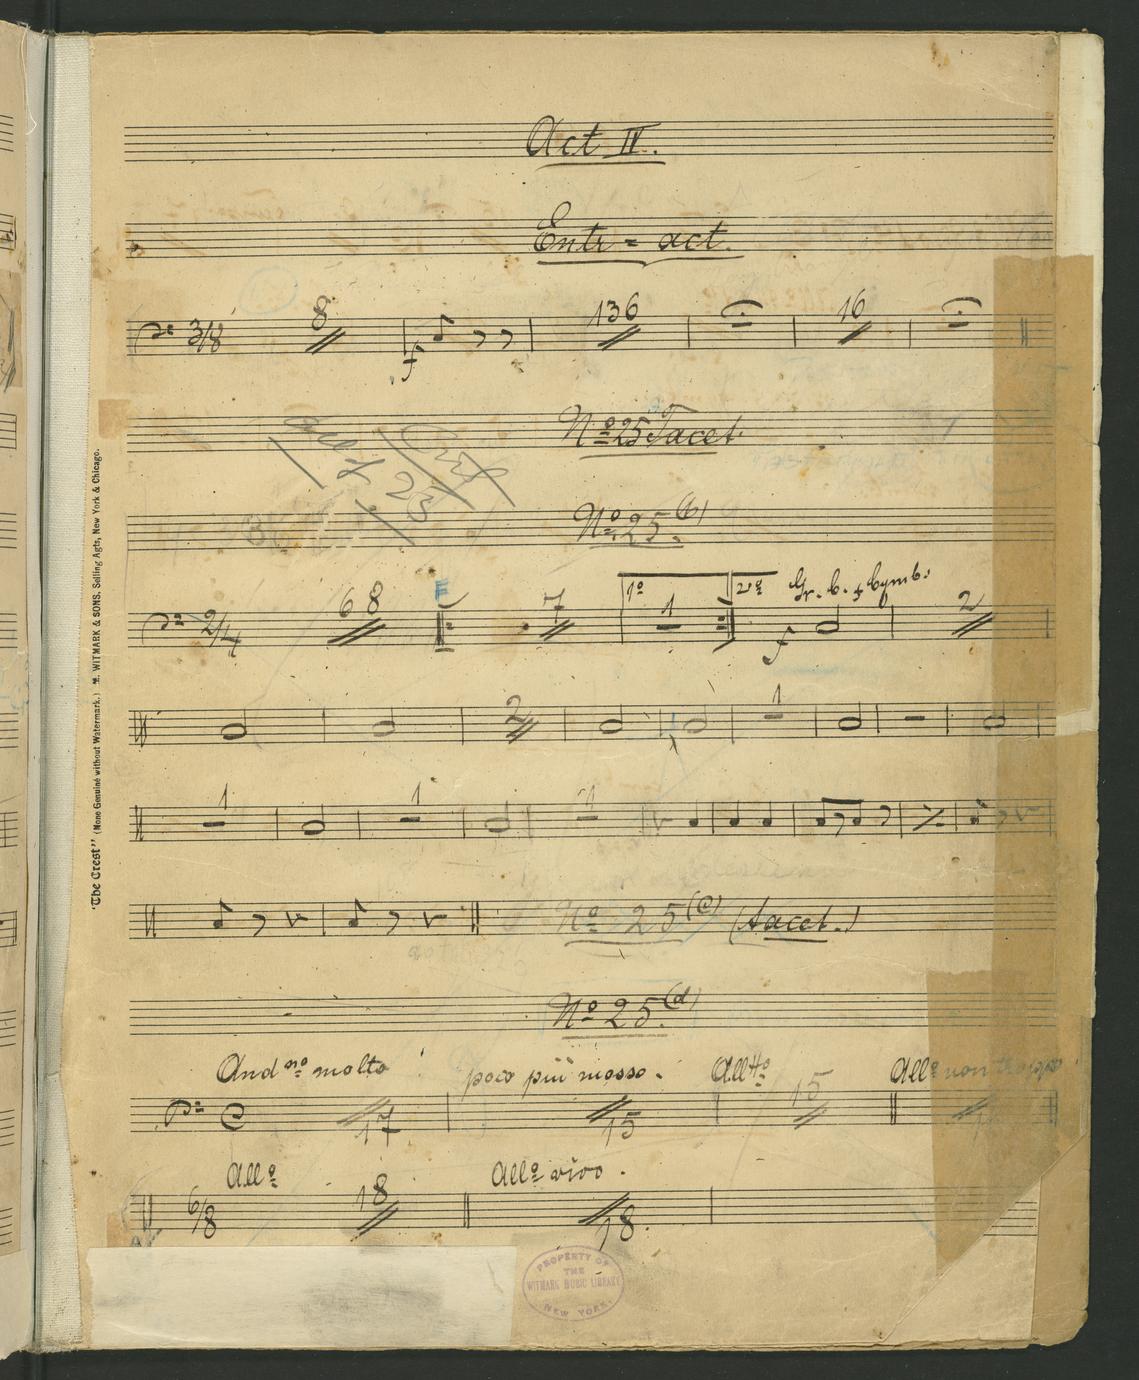 Act IV.
Entr = act.
3/8 8 f 136 16
No 25 Tacet.
Cut
25
No 25 (b)
2/4 68 7 1o 1 2o f Gr. b. & Cymb. 2
2 1
1 1 1
No 25 (c) (tacet.)
No 25 (d)
Andno molto poco più mosso. Alltto Allo non troppo
C 17 15 15
Allo Allo vivo.
6/8 18 18.
"The Crest" (None Genuine without Watermark.) M. WITMARK & SONS, Selling Agts, New York & Chicago.
PROPERTY OF
THE
WITMARK MUSIC LIBRARY
NEW YORK.